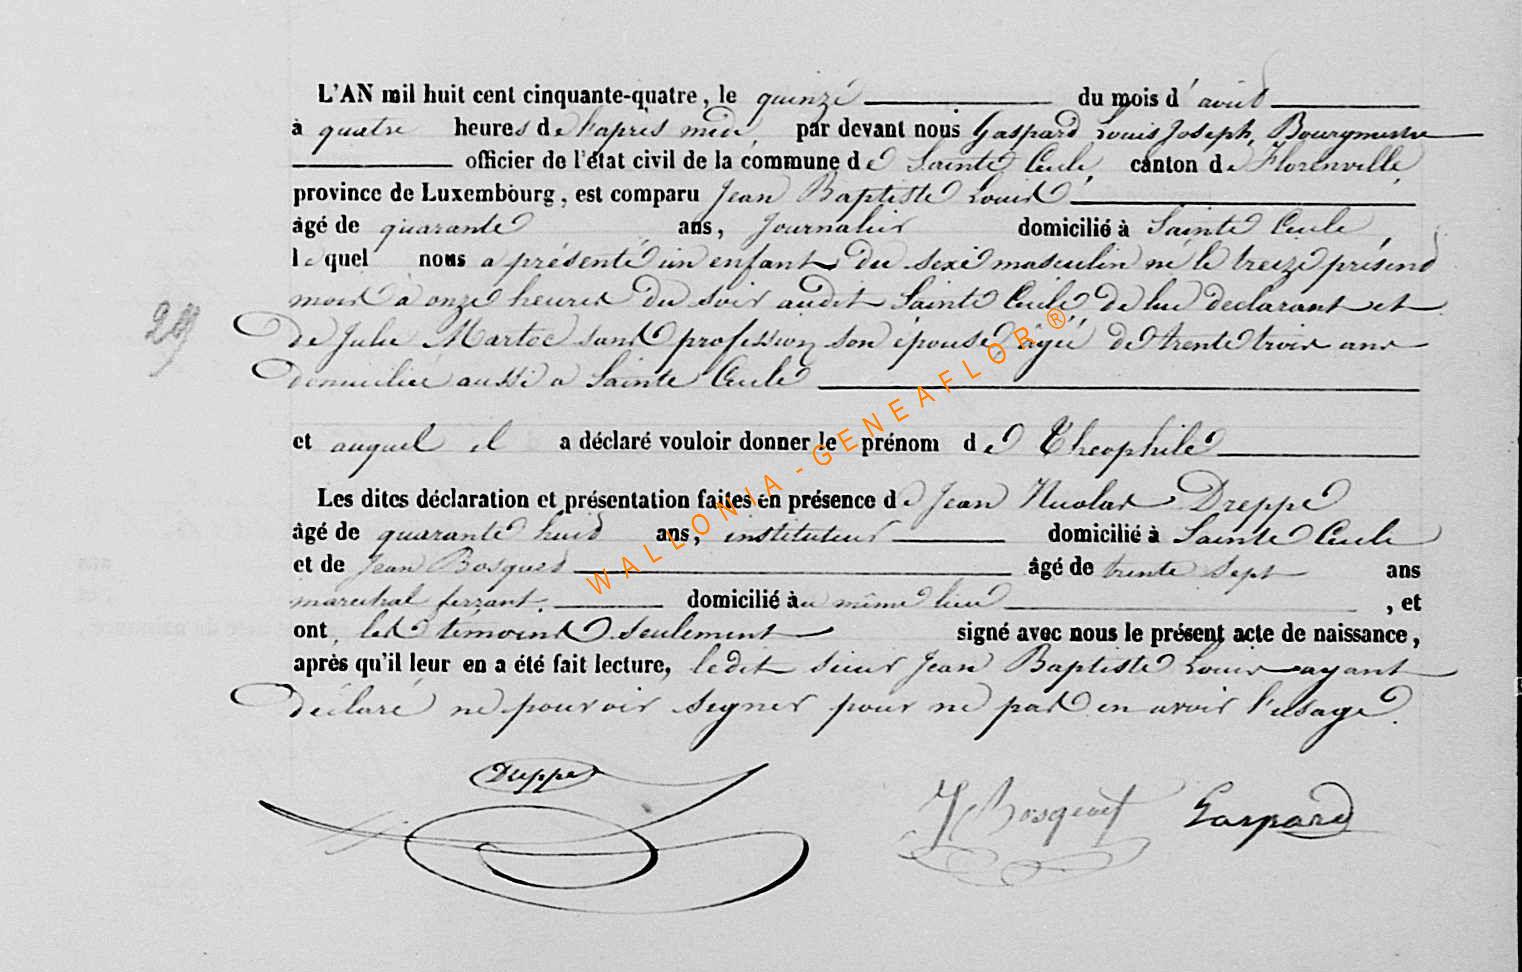 L'AN mil huit cent cinquante-quatre, le quinze du mois d'août
à quatre heures de l'après midi, par devant nous Gaspard Louis Joseph, Bourgmestre
officier de l'état civil de la commune de Sainte Cecile, canton de Florenville,
province de Luxembourg, est comparu Jean Baptiste Louis
âgé de quarante ans, Journalier domicilié à Sainte Cecile,
lequel nous a présenté un enfant du sexe masculin né le treize présent
mois à onze heures du soir audit Sainte Cecile de lui declarant et
29
de Julie Martoc sans profession son épouse, âgée de trente trois ans
domiciliée aussi a Sainte Cecile
et auquel il a déclaré vouloir donner le prénom de Theophile
Les dites déclaration et présentation faites en présence de Jean Nicolas Dreppe
âgé de quarante huit ans, instituteur domicilié à Sainte Cecile
et de Jean Bosquet âgé de trente sept ans
marechal ferrant, domicilié au même lieu, et
ont les témoins seulement signé avec nous le présent acte de naissance,
après qu'il leur en a été fait lecture, ledit sieur Jean Baptiste Louis ayant
déclaré ne pouvoir signer pour ne pas en avoir l'usage.
Dreppe
J Bosquet Gaspard
WALLONIA - GENEAFLOR ®